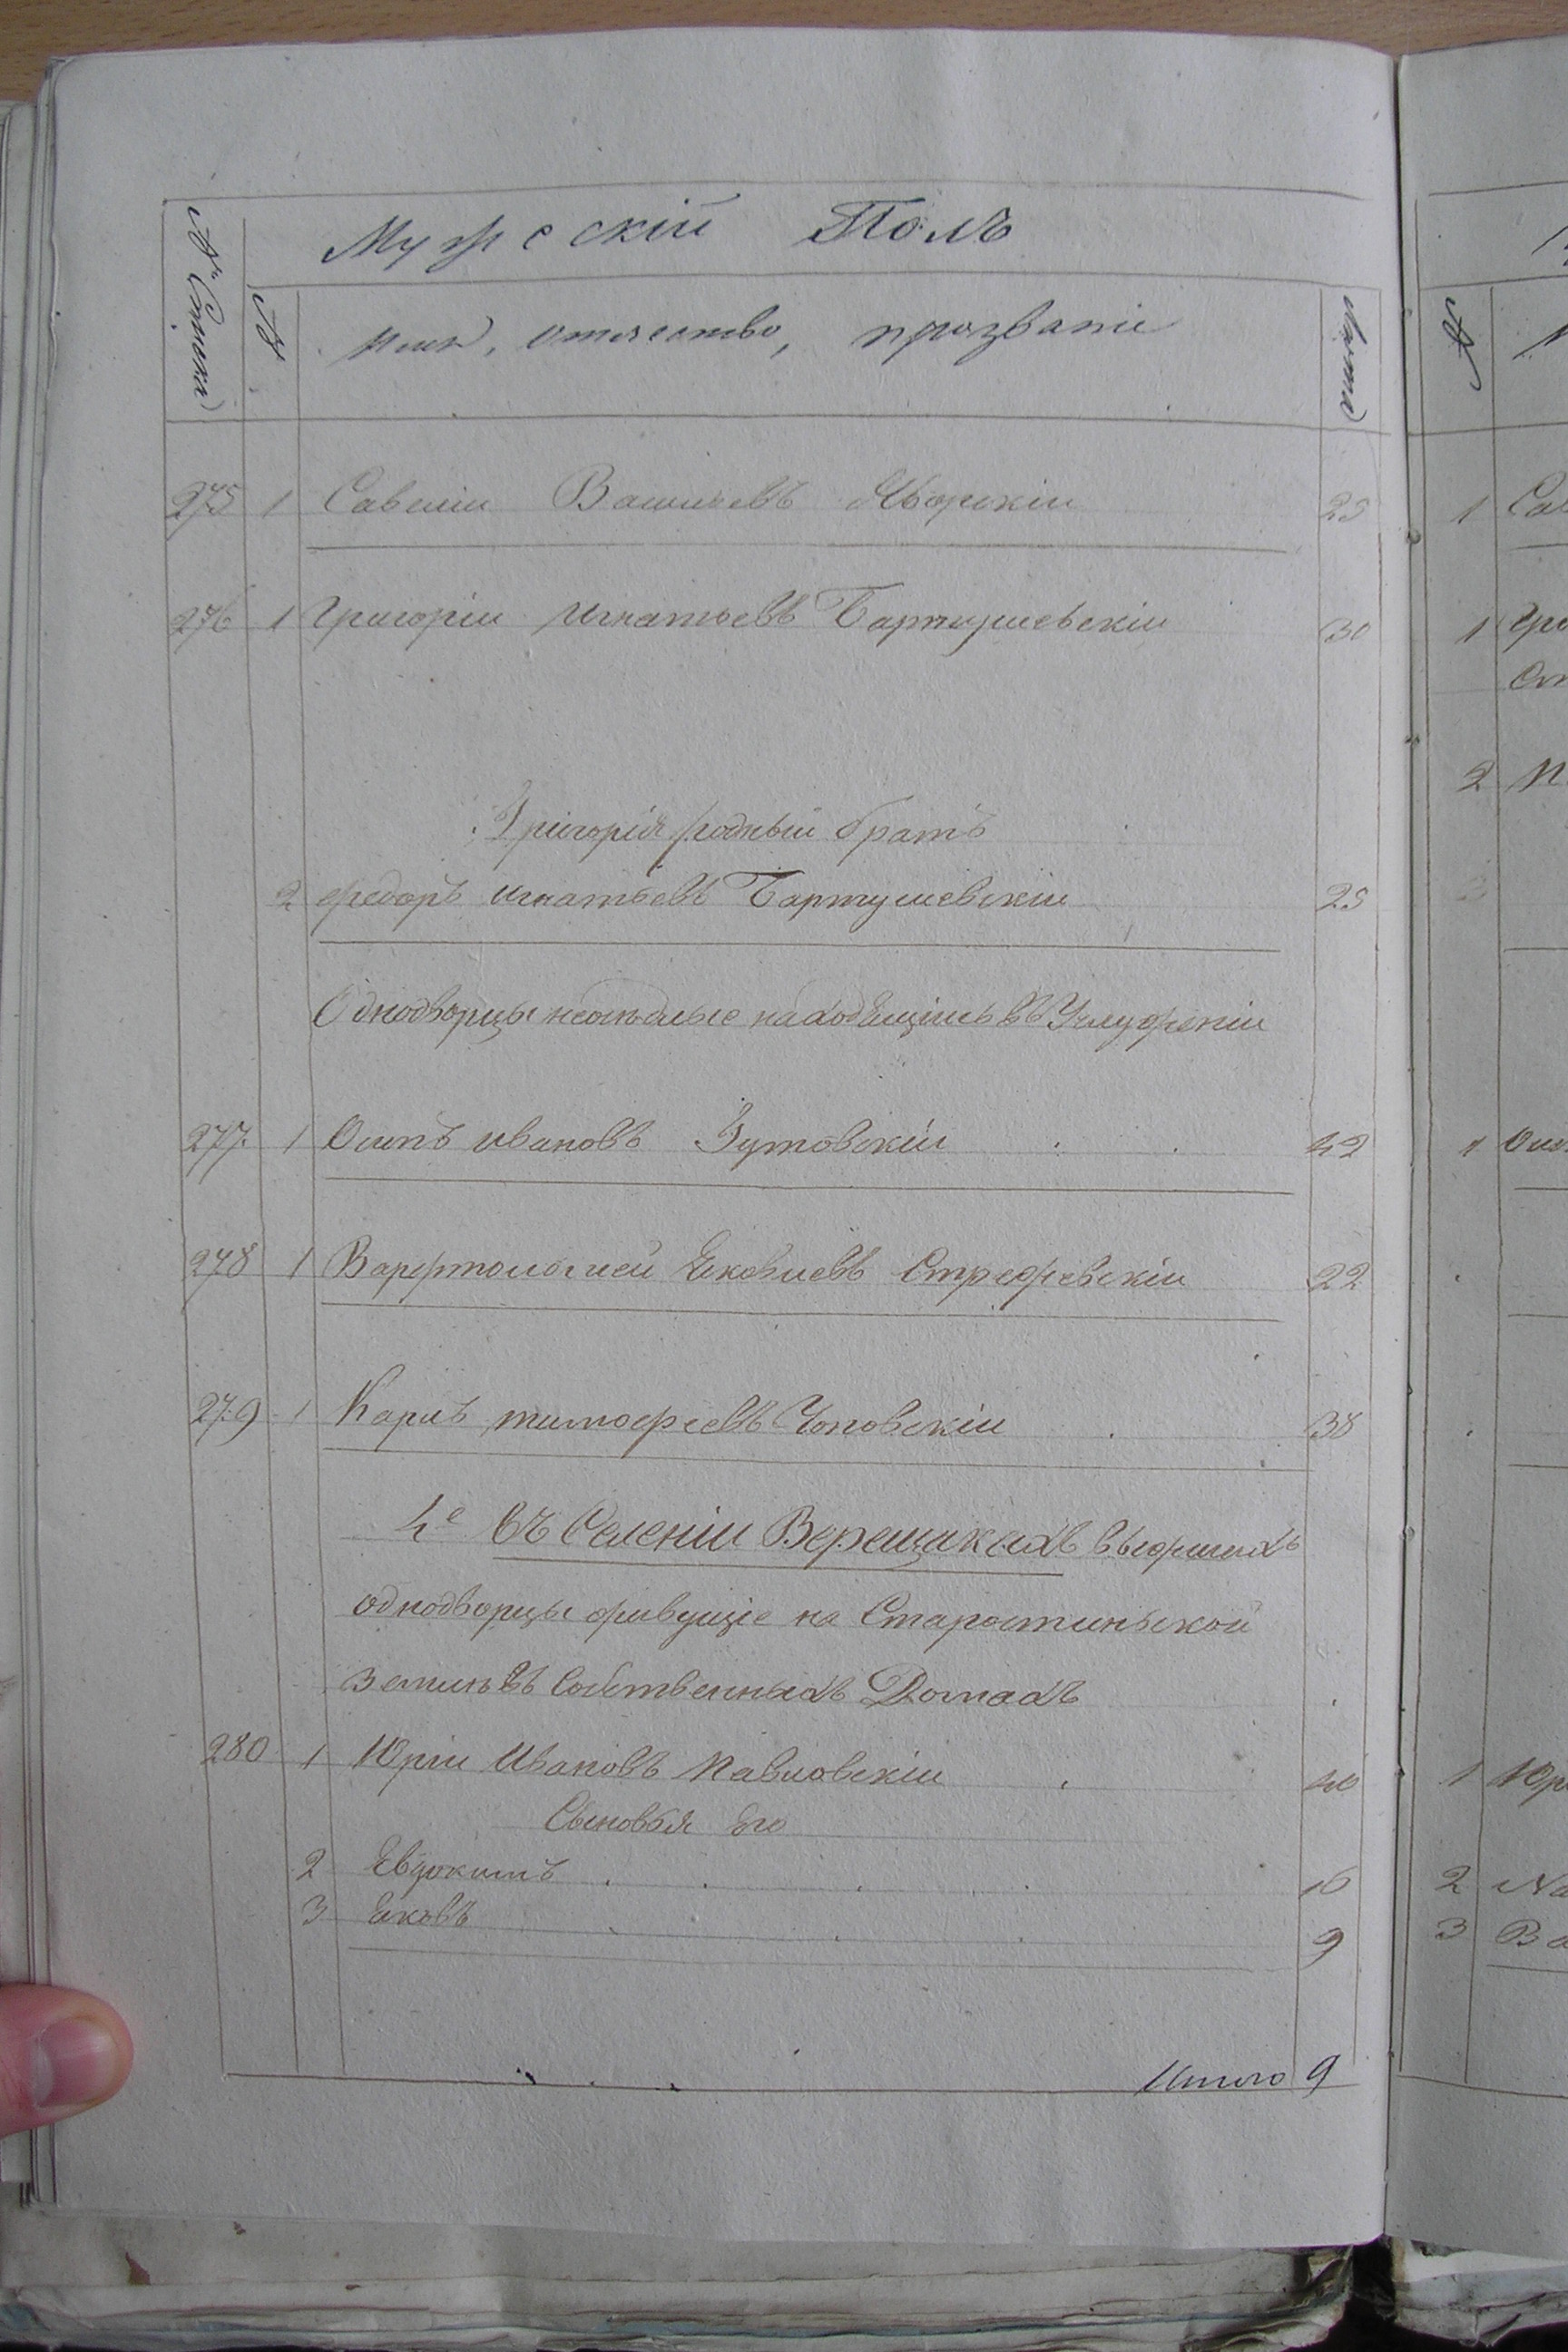 Мужескій Полъ
№ Списка
№
Имя, отчество, прозваніе
Лѣта
275 1 Савелій Васильевъ Яворскій 25
276 1 Григорій Игнатьевъ Бартушевскій 30
Григорія родный братъ
2 Федоръ Игнатьевъ Бартушевскій 25
Однодворцы неосѣдлые находящіись въ Услуженіи
277 1 Осипъ Ивановъ Гутовскій 42
278 1 Варфтоломей Яковлевъ Стржежевскій 22
279 1 Карлъ Тимофеевъ Чоповскій 38
4е въ Селеніи Верещакахъ Выжшихъ
однодворцы живущіе на Старостинской
землѣ въ собственныхъ Домахъ
280 1 Юрій Ивановъ Павловскій 40
Сыновья его
2 Евдокимъ 16
3 Яковъ 9
Итого 9
1
1
2
1
1 Юр
2 На
3 Ва